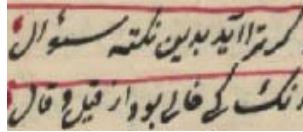 کر ترا آید بدین نکته سؤال
نکے خالے بود از قیل و قال